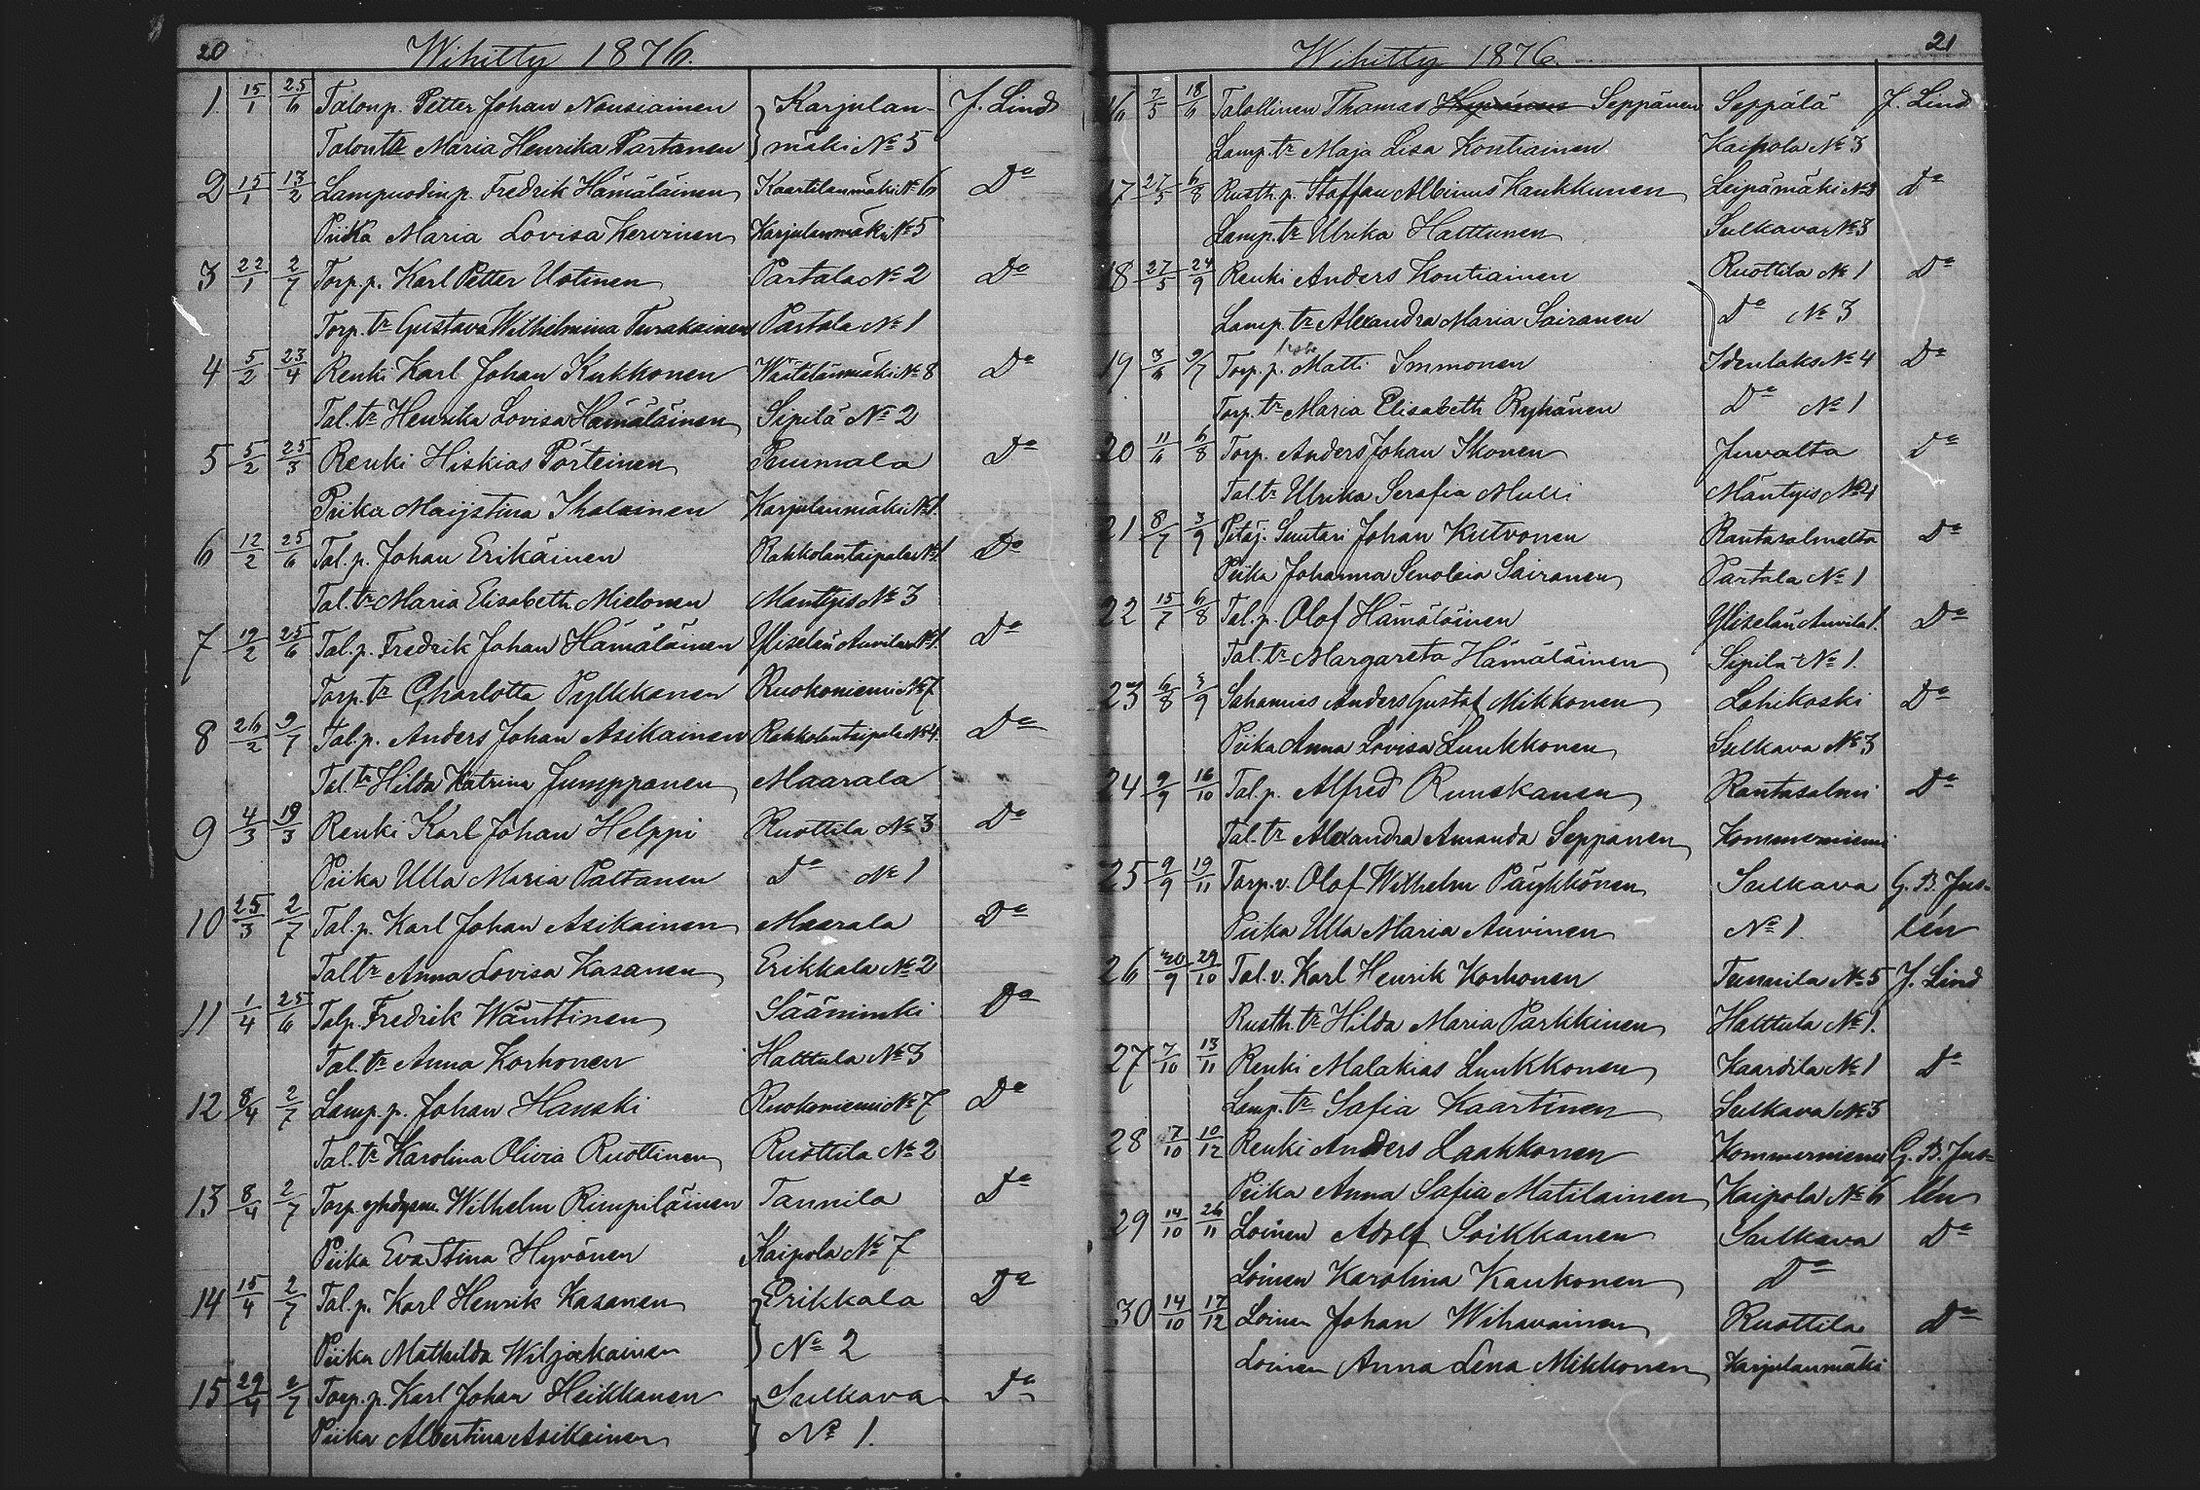 20
Wihitty 1876.
1. 15/1 25/6 Talonp. Petter Johan Nousiainen } Karjulan- J. Lind
Talontr Maria Henrika Partanen } mäki No 5
2 15/1 13/2 Lampuodinp. Fredrik Hämäläinen Kaartilanmäki No 6 Do
Piika Maria Lovisa Kervinen Karjulanmäki No 5
3 22/1 2/7 Torp.p. Karl Petter Ustinen Partala No 2 Do
Torp. tr Gustava Wilhelmina Turakainen Partala No 1
4 5/2 23/4 Renki Karl Johan Kukkonen Wäätälänmäki No 8 Do
Tal. tr Henrika Lovisa Hämäläinen Sipilä No 2
5 5/2 25/3 Renki Hiskias Pörteinen Puumala Do
Piika Maijstina Ihalainen Karjulanmäki No 1
6 12/2 25/6 Tal. p. Johan Erikäinen Rakkolantaipale No 1 Do
Tal. tr Maria Elisabeth Mielonen Mäntyis No 3
7 19/2 25/6 Tal. p. Fredrik Johan Hämäläinen Yliselän Auvila No 1. Do
Torp. tr Charlotta Pylkkänen Ruokoniemi No 7
8 26/2 9/7 Tal. p. Anders Johan Asikainen Rakkolantaipale No 4. Do
Tal. tr Hilda Katrina Jumppanen Maarala
9 4/3 19/3 Renki Karl Johan Helppi Ruottila No 3 Do
Piika Ulla Maria Pattanen Do No 1
10 25/3 2/7 Tal. p. Karl Johan Asikainen Maarala Do
Tal tr Anna Lovisa Kasanen Erikkala No 2
11 1/4 25/6 Talp. Fredrik Wänttinen Sääminki Do
Tal. tr Anna Korhonen Halttula No 3
12 8/4 2/7 Lamp. p. Johan Hanski Ruokoniemi No 7 Do
Tal. tr Karolina Olivia Ruottinen Ruottila No 2
13 8/4 2/7 Torp. Wilhelm Rimpiläinen Tannila Do
Piika Eva Stina Hyvönen Kaipola No 7
14 15/4 2/7 Tal. p. Karl Henrik Kasanen } Erikkala Do
Piika Mathilda Wiljakainen } No 2
15 29/4 2/7 Torp. p. Karl Johan Heikkanen } Sulkava Do
Piika Albertina Asikainen } No 1.
21
Wihitty 1876.
16 7/5 18/6 Talollinen Thomas Seppänen Seppälä J. Lind
Lamp. tr Maja Lisa Kontiainen Kaipola No 3
17 27/5 6/8 Rusth. p. Staffan Albinus Kaukkunen Leipämäki No 3 Do
Lamp. tr Ulrika Halttunen Sulkava No 3
18 27/5 24/9 Renki Anders Kontiainen Ruottila No 1 Do
Lamp. tr Alexandra Maria Sairanen Do No 3
19 3/6 9/7 Torp. p. Matti Immonen Idenlaks No 4 Do
Torp. tr Maria Elisabeth Ryhänen Do No 1
20 11/6 6/8 Torp. Anders Johan Ikonen Juvalta Do
Tal tr Ulrika Serafia Mulli Mäntyis No 4
21 8/7 3/9 Pitäj. Suutari Johan Kutvonen Rantasalmelta Do
Piika Johanna Senoleia Sairanen Partala No 1
22 15/7 6/8 Tal. p. Olof Hämäläinen Yliselän Auvila 1. Do
Tal. tr Margareta Hämäläinen Sipilä No 1.
23 6/8 3/9 Sahamies Anders Gustaf Mikkonen Lohikoski Do
Piika Anna Lovisa Luukkonen Sulkava No 3
24 9/9 16/10 Tal. p. Alfred Ruuskanen Rantasalmi Do
Tal. tr Alexandra Amanda Seppänen Kommerniemi
25 9/9 19/11 Torp. v. Olof Wilhelm Päykkönen Sulkava G. B. Jus-
Piika Ulla Maria Auvinen No 1. lén
26 20/9 29/10 Tal. v. Karl Henrik Korhonen Tunnila No 5 J. Lind
Rusth. tr Hilda Maria Parkkinen Halttula No 1.
27 7/10 13/11 Renki Malakias Luukkonen Kaardila No 1 Do
Lamp. tr Safia Kaartinen Sulkava No 3
28 7/10 10/12 Renki Anders Laakkonen Kommerniemi G. B. Jus-
Piika Anna Safia Matilainen Kaipola No 6 lén
29 14/10 26/11 Loinen Adolf Soikkanen Sulkava Do
Loinen Karolina Kaukonen Do
30 14/10 17/12 Loinen Johan Wihavainen Ruottila Do
Loinen Anna Lena Mikkonen Karjulanmäki